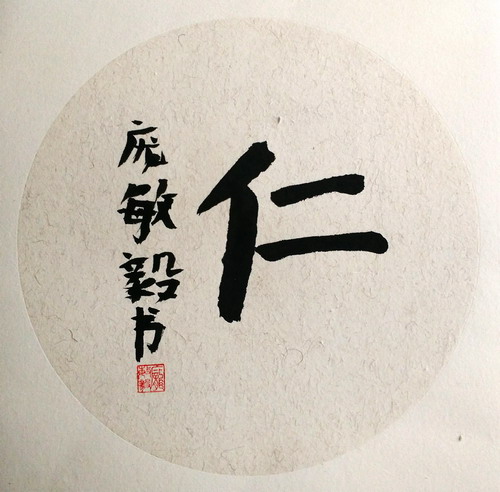 仁
庞敏毅书